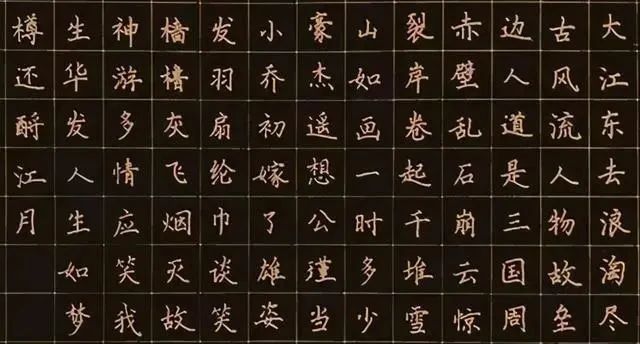 大江东去浪淘尽
古风流人物故垒
边人道是三国周
赤壁乱石崩云惊
裂岸卷起千堆雪
山如画一时多少
豪杰遥想公瑾当
小乔初嫁了雄姿
发羽扇纶巾谈笑
樯橹灰飞烟灭故
神游多情应笑我
生华发人生如梦
樽还酹江月